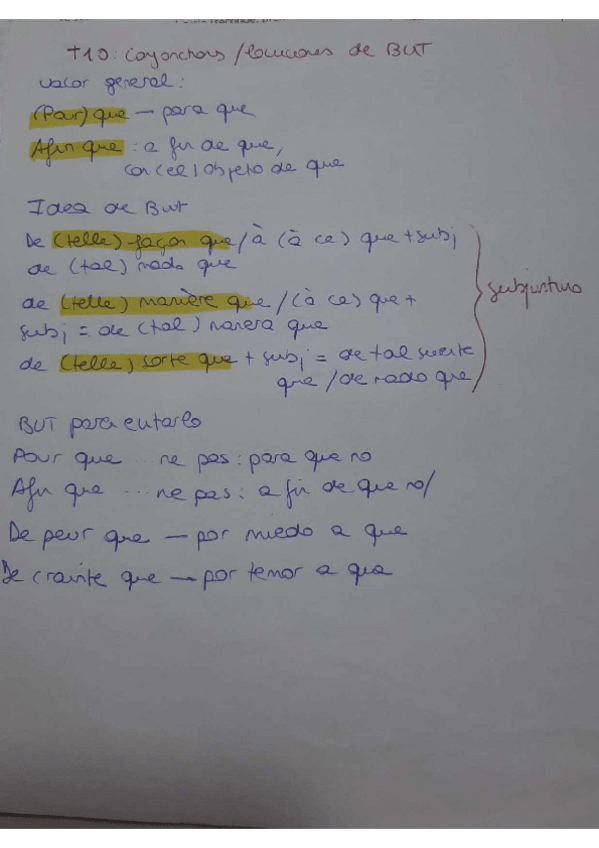 T10: Conjonctions / locuciones de BUT
valor general:
(Pour) que — para que
Afin que : a fin de que,
con (el) objeto de que
Idea de But
De (telle) façon que / à (à ce) que + subj
de (tal) modo que
de (telle) manière que / (à ce) que +
subj = de (tal) manera que
de (telle) sorte que + subj = de tal suerte
que / de modo que
subjuntivo
BUT para evitarlo
Pour que ... ne pas : para que no
Afin que ... ne pas : a fin de que no/
De peur que — por miedo a que
De crainte que — por temor a que